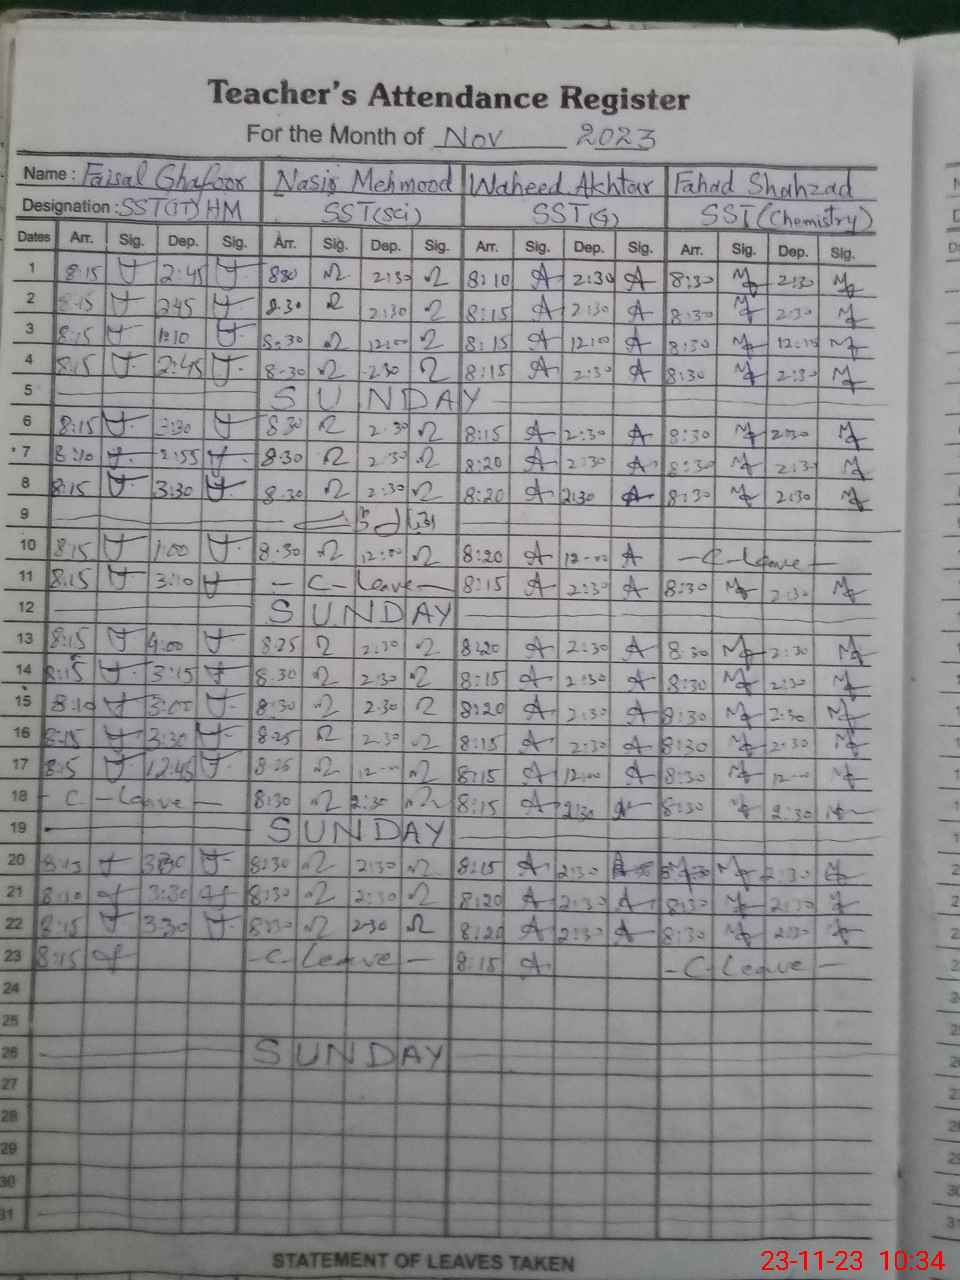 Teacher's Attendance Register
For the Month of Nov 2023
Name : Faisal Ghafoor Nasir Mehmood Waheed Akhtar Fahad Shahzad
Designation : SST(IT) HM SST(Sci) SST(G) SST(Chemistry)
Dates Arr. Sig. Dep. Sig. Arr. Sig. Dep. Sig. Arr. Sig. Dep. Sig. Arr. Sig. Dep. Sig.
1 8:15 2:45 830 2:30 8:10 2:30 8:30 2:30
2 8:15 245 8.30 2:30 8:15 2:30 8:30 2:30
3 8:15 1:10 8:30 12:00 8:15 12:00 8:30 12:10
4 8:15 2:45 8-30 2.30 8:15 2:30 8:30 2:30
5 SUNDAY
6 8:15 3:30 830 2.30 8:15 2:30 8:30 2:30
7 8:10 2:55 8.30 2:30 8:20 2:30 8:30 2:30
8 8:15 3:30 8.30 2:30 8:20 2:30 8:30 2:30
9
10 8:15 1:00 8.30 12:00 8:20 12-00 -C-Leave-
11 8:15 3:10 -C-Leave- 8:15 2:30 8:30 2:30
12 SUNDAY
13 8:15 4:00 8:25 2:30 8:20 2:30 8:30 2:30
14 8:15 3:15 8.30 2:30 8:15 2:30 8:30 2:30
15 8:10 3:05 8:30 2.30 8:20 2:30 8:30 2:30
16 8:15 3:30 8.25 2.30 8:15 2:30 8:30 2:30
17 8:5 12:45 8:25 12-00 8:15 12:00 8:30 12-00
18 -C-Leave- 8:30 2:30 8:15 2:30 8:30 2:30
19 SUNDAY
20 8:15 3:30 8:30 2:30 8:15 2:30 2:30
21 8:10 3:30 8:30 2:30 8:20 2:30 8:30 2:30
22 8:15 3:30 8:30 2:30 8:20 2:30 8:30 2:30
23 8:15 -C-Leave- 8:15 -C-Leave-
24
25
26 SUNDAY
27
28
29
30
31
STATEMENT OF LEAVES TAKEN
23-11-23 10:34